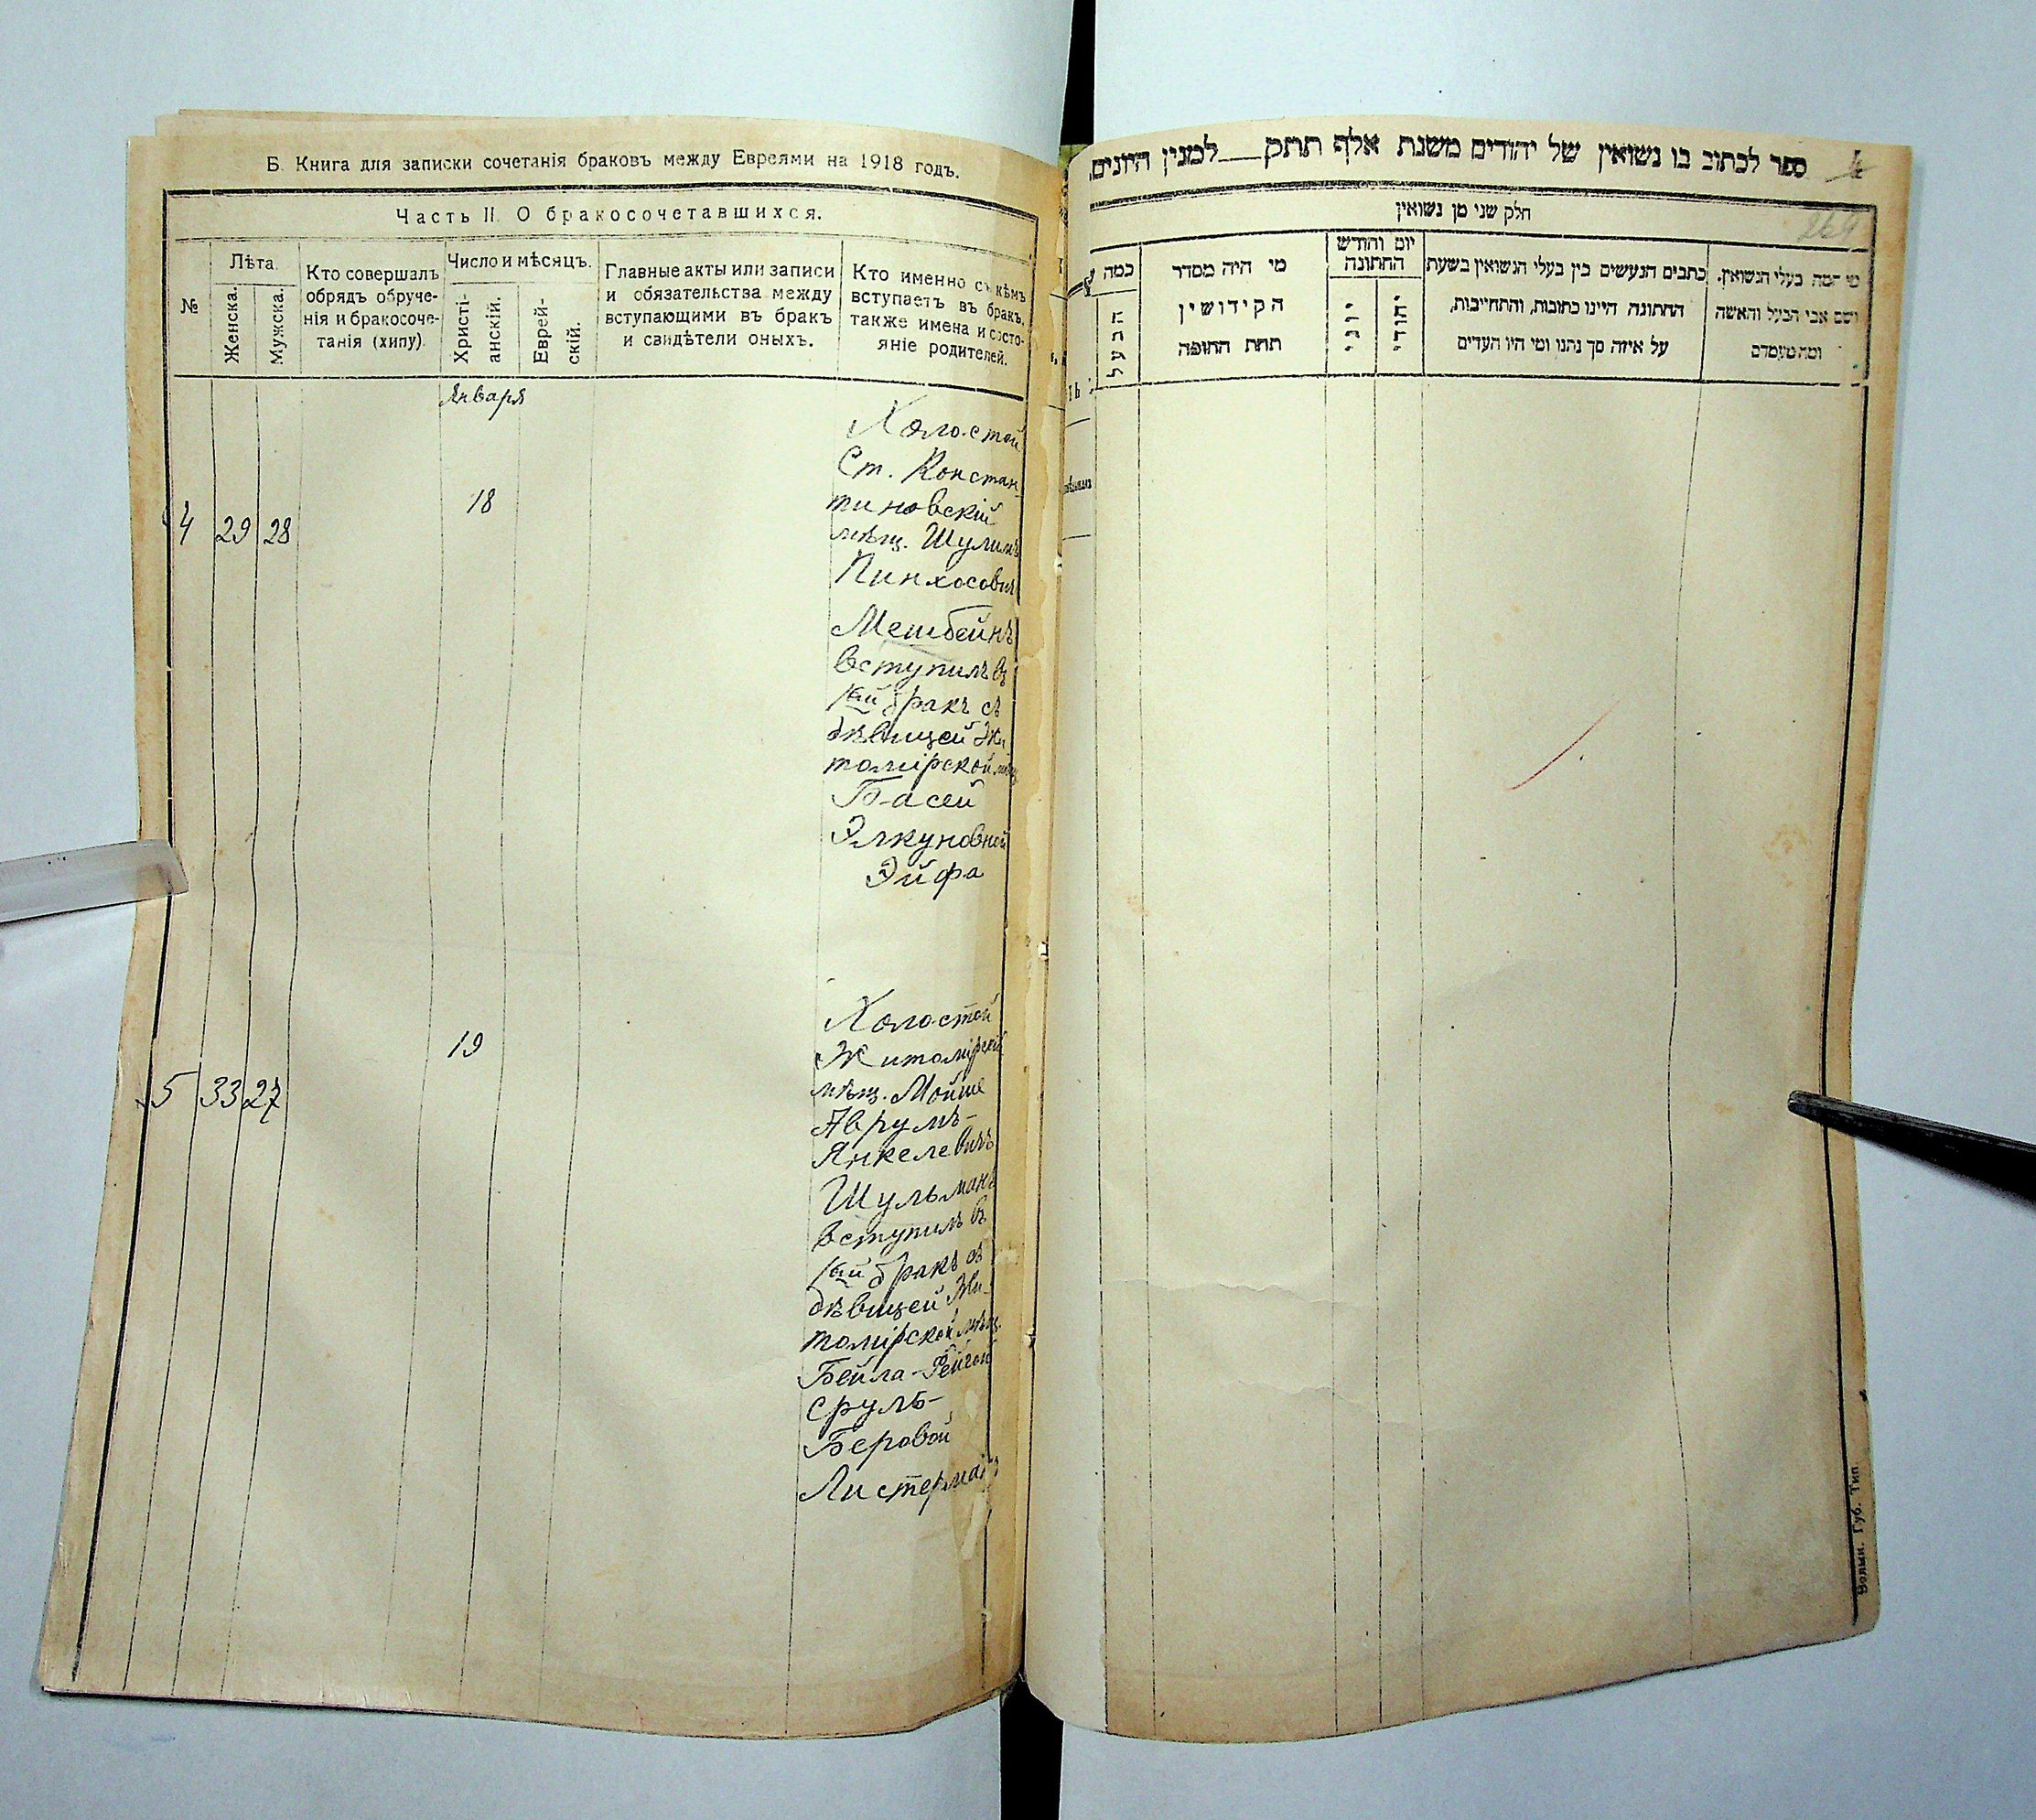 Б. Книга для записки сочетанія браковъ между Евреями на 1918 годъ.
Часть II. О бракосочетавшихся.
№
Лѣта.
Женска.
Мужска.
Кто совершалъ
обрядъ обруче-
нія и бракосоче-
танія (хипу)
Число и мѣсяцъ.
Христі-
анскій.
Еврей-
скій.
Главные акты или записи
и обязательства между
вступающими въ бракъ
и свидѣтели оныхъ.
Кто именно съ кѣмъ
вступаетъ въ бракъ,
также имена и состо-
яніе родителей.
Января
4
29
28
18
Холостой
Ст. Констан-
тиновскій
мѣщ. Шулимъ
Пинхосовичъ
Мешбейнъ
вступилъ въ
1ый бракъ съ
дѣвицей Жи
томірской мѣщ
Басей
Элкуновной
Эйфа
5
33
27
19
Холостой
Житомірскій
мѣщ. Мойше
Аврумъ-
Янкелевичъ
Шульманъ
вступилъ въ
1ый бракъ съ
дѣвицей Жи-
томірской мѣщ.
Бейла-Рейзой
Сруль-
Беровой
Листерманъ
ספר לכתוב בו נשואין של יהודים משנת אלף תתק___למנין היונים.
4
חלק שני מן נשואין
מי המה בעלי הנשואין.
ושם אבי הבעל והאשה
ומה מעמדם
כתבים הנעשים בין בעלי הנשואין בשעת
החתונה היינו כתובות, והתחייבות,
על איזה סך נתנו ומי היו העדים
יום והודש
החתונה
יהודי
יוני
מי היה מסדר
הקידושין
תחת החופה
כמה
הבעל
Волын. Губ. Тип.